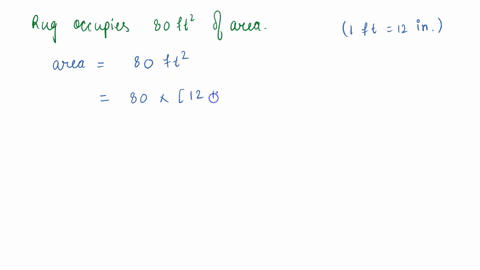 Rug occupies 80 ft² of area. (1 ft = 12 in.)
area = 80 ft²
= 80 × [12